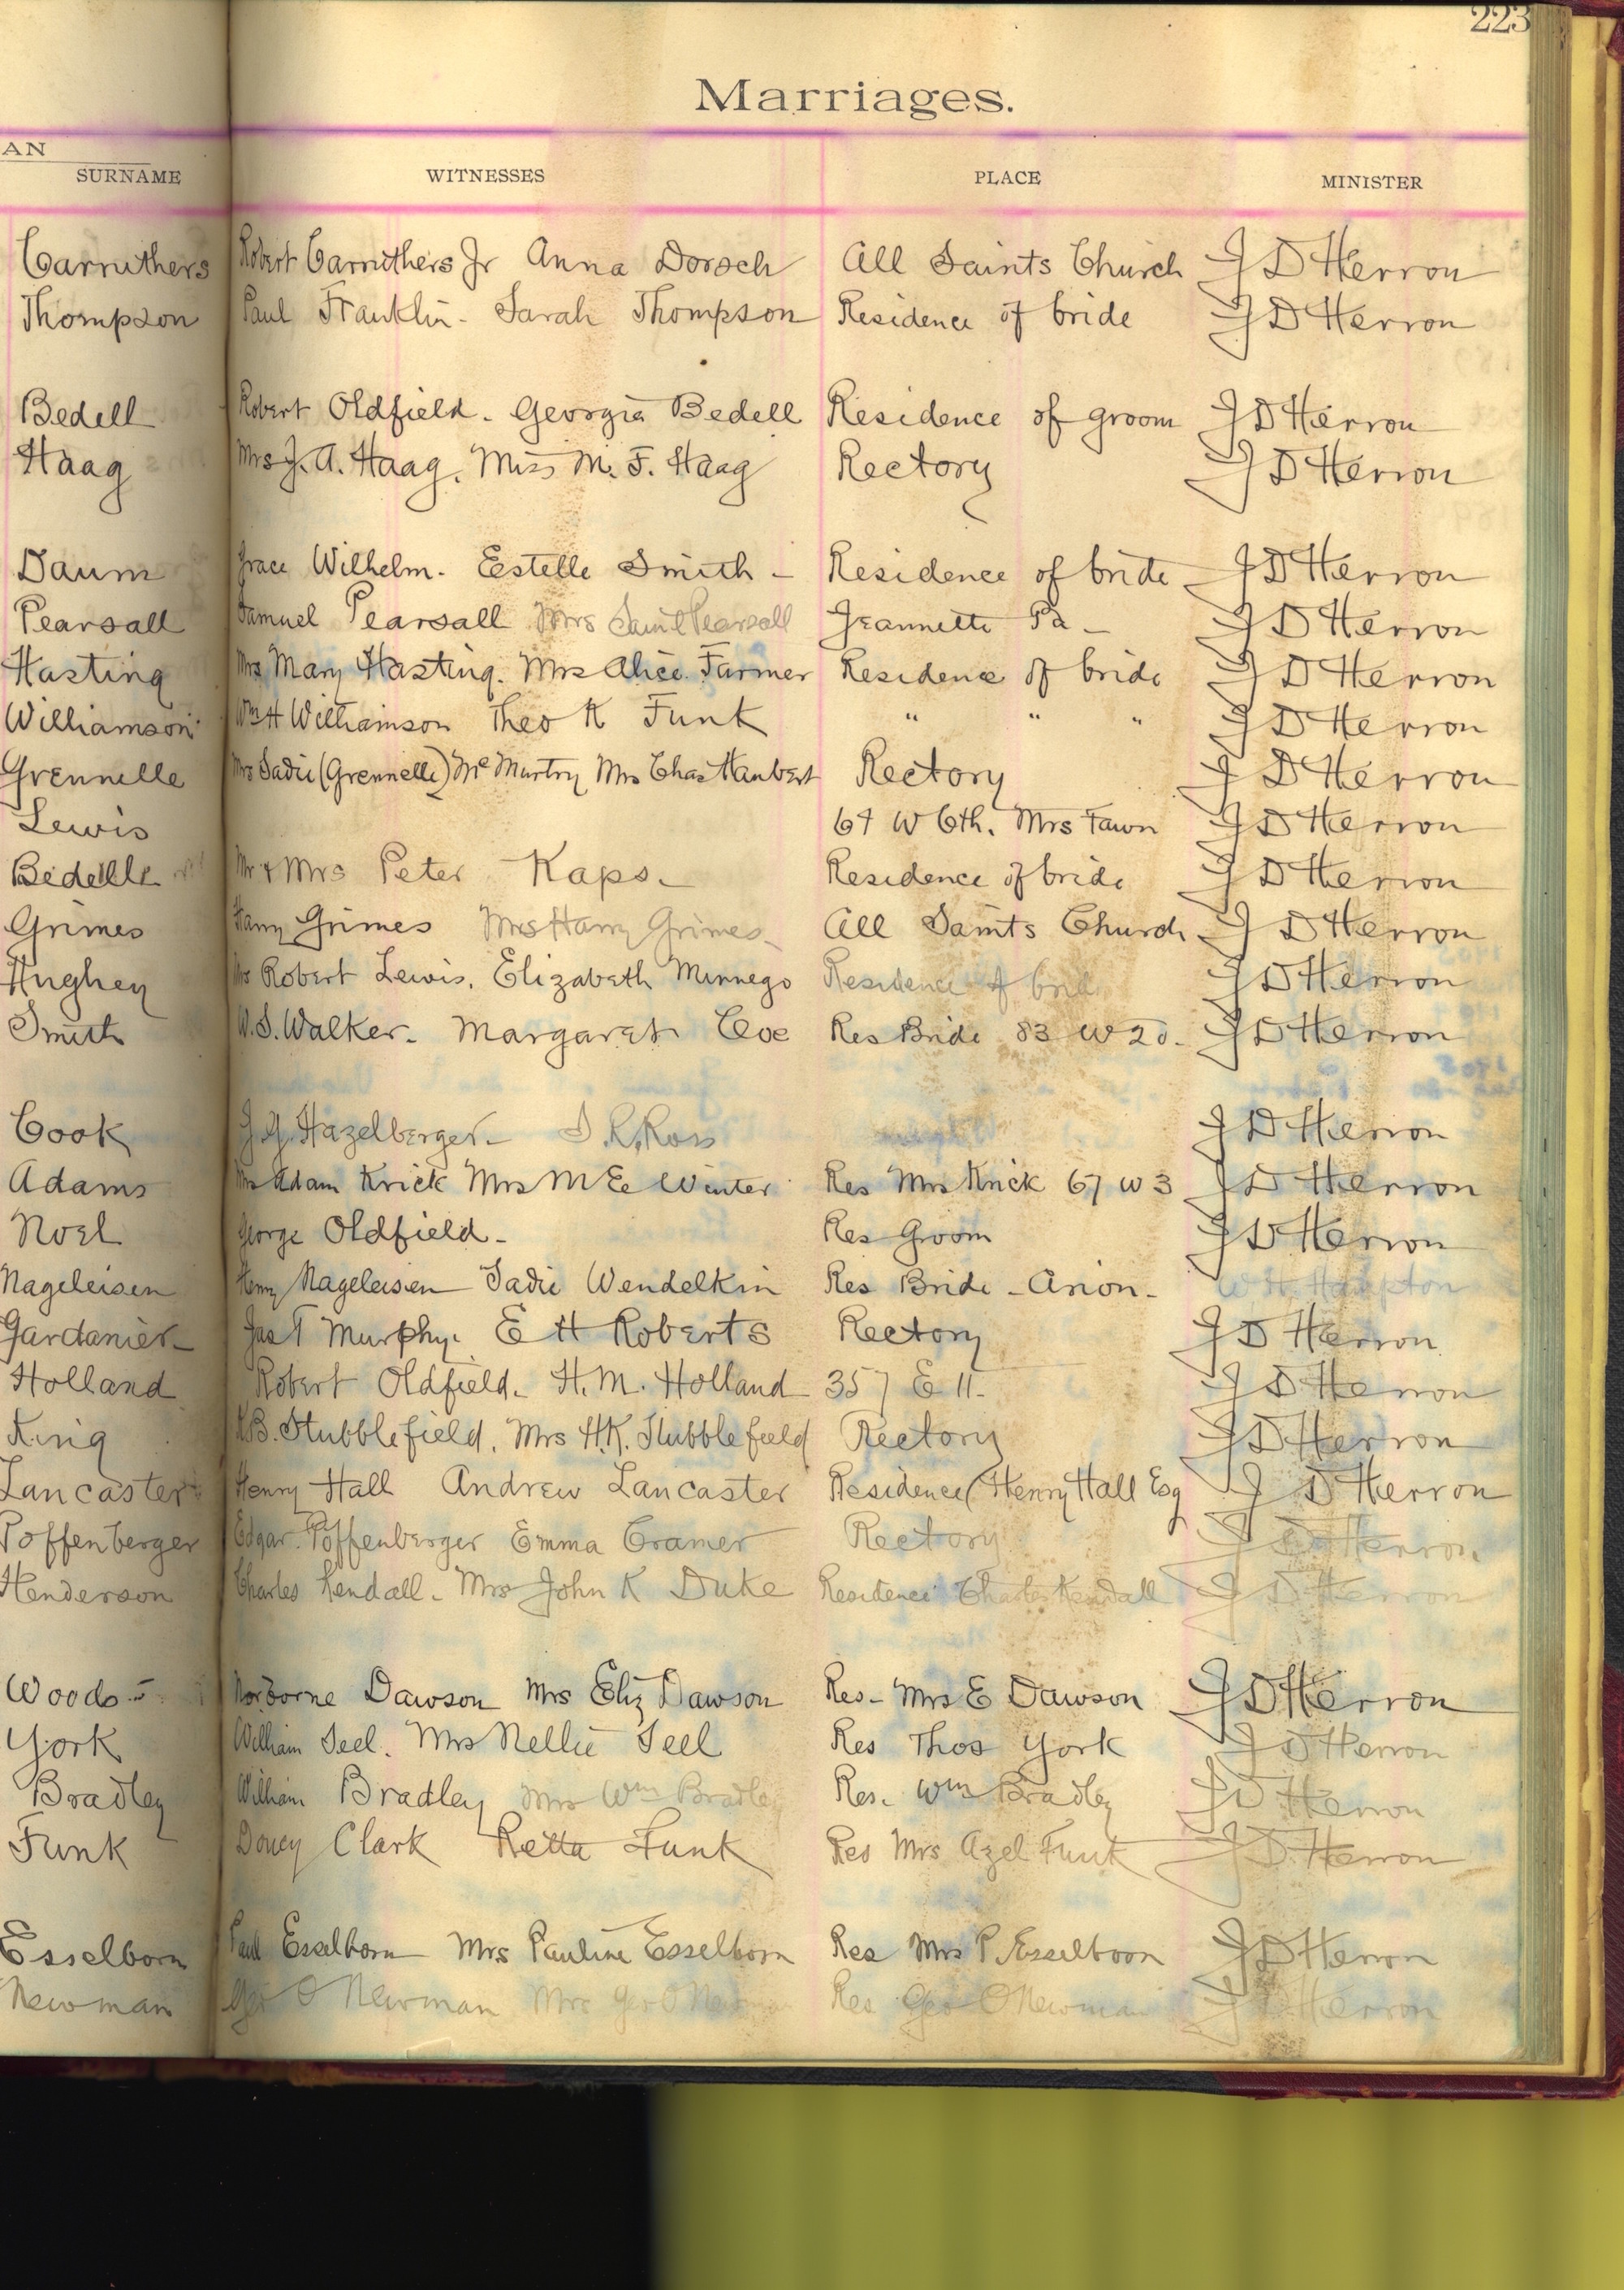 223
Marriages.
AN
SURNAME WITNESSES PLACE MINISTER
Carruthers Robert Carruthers Jr Anna Dorsch All Saints Church J D Herron
Thompson Paul Franklin - Sarah Thompson Residence of bride J D Herron
Bedell Robert Oldfield. Georgia Bedell Residence of groom J D Herron
Haag Mrs J. A. Haag. Miss M. F. Haag Rectory J D Herron
Daum Grace Wilhelm. Estelle Smith - Residence of bride J D Herron
Pearsall Samuel Pearsall Mrs Saml Pearsall Jeannette Pa - J D Herron
Hasting Mrs Mary Hasting. Mrs Alice Farmer Residence of bride J D Herron
Williamson Wm H Williamson Theo K Funk " " " J D Herron
Grennelle Mrs Sadie (Grennelle) Mc Murtry Mrs Chas Haubert Rectory J D Herron
Lewis 67 W 6th. Mrs Fawn J D Herron
Bedelle Mr & Mrs Peter Kaps. Residence of bride J D Herron
Grimes Harry Grimes Mrs Harry Grimes All Saints Church J D Herron
Hughey Mrs Robert Lewis. Elizabeth Minnego Residence of bride J D Herron
Smith W. S. Walker. Margaret Coe Res Bride 83 W 2d. J D Herron
Cook J. Y. Hazelberger - S. R. Ross J D Herron
Adams Mrs Adam Krick Mrs M E Winter Res Mrs Krick 67 W 3 J D Herron
Noel George Oldfield - Res Groom J D Herron
Nageleisen Henry Nageleisen Sadie Wendelkin Res Bride - Arion - W H Hampton
Gardanier Jas T Murphy. E H Roberts Rectory J D Herron
Holland Robert Oldfield. H. M. Holland 357 E 11 - J D Herron
King B. Stubblefield. Mrs H.K. Stubblefield Rectory J D Herron
Lancaster Henry Hall Andrew Lancaster Residence (Henry Hall Esq J D Herron
Poffenberger Edgar Poffenberger Emma Cramer Rectory J D Herron
Henderson Charles Kendall. Mrs John K Duke Residence Charles Kendall J D Herron
Woods Norborne Dawson Mrs Eliz Dawson Res - Mrs E Dawson J D Herron
York William Seel. Mrs Nellie Seel Res Thos York J D Herron
Bradley William Bradley Mrs Wm Bradley Res. Wm Bradley J D Herron
Funk Doney Clark Retta Funk Res Mrs Azel Funk J D Herron
Esselborn Paul Esselborn Mrs Pauline Esselborn Res Mrs P. Esselborn J D Herron
Newman Geo O Newman Mrs Geo O Newman Res Geo O Newman J D Herron